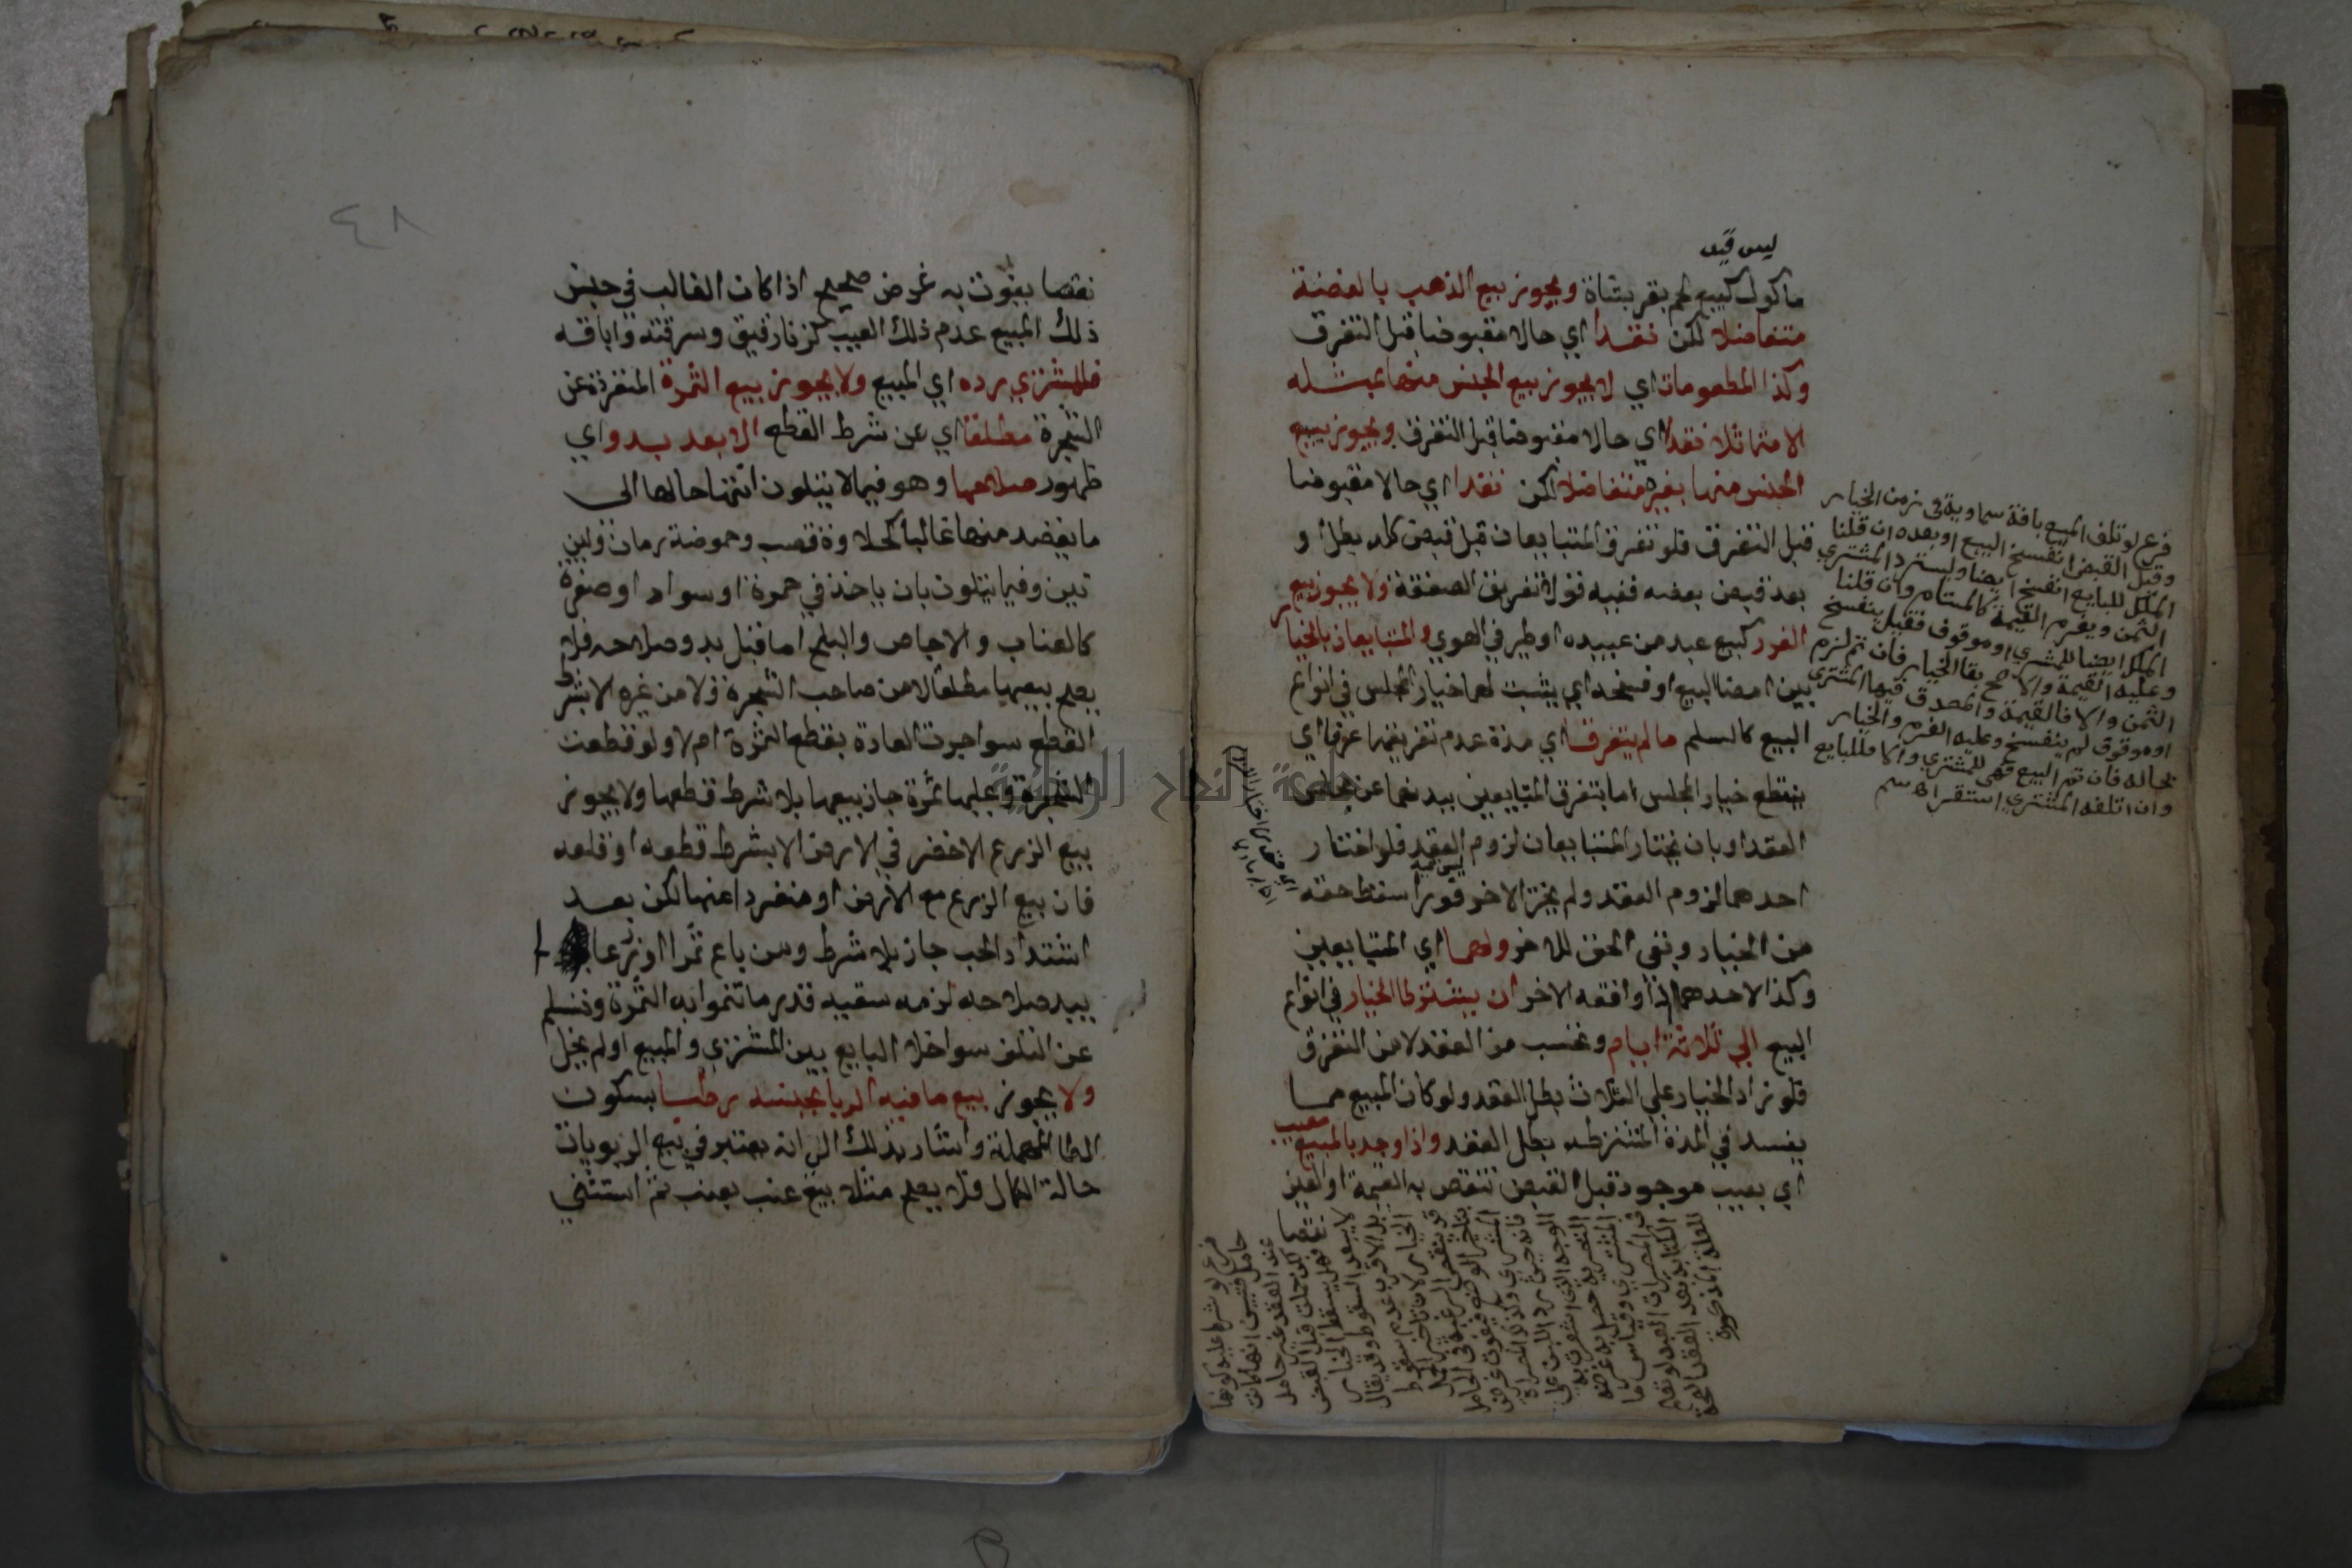 ليس قيد
ماكول كبيع لحم بقر بشاة ويجوز بيع الذهب بالفضة
متفاضلا لكن نقدا اي حالا مقبوضا قبل التفرق
وكذا المطعومات اي لا يجوز بيع الجنس منها بمثله
الا متماثلا نقدا اي حالا مقبوضا قبل التفرق ويجوز بيع
الجنس منها بغيره متفاضلا لكن نقدا اي حالا مقبوضا
قبل التفرق فلو تفرق المتبايعان قبل قبض كله بطل او
بعد قبض بعضه ففيه قولا تفريق الصفقة ولا يجوز بيع
الغرر كبيع عبد من عبيده او طير في الهوي والمتبايعان بالخيار
بين امضا البيع او فسخه اي يثبت لهما خيار المجلس في انواع
البيع كالسلم مالم يتفرقا اي مدة عدم تفريقهما عرفا اي
ينقطع خيار المجلس اما بتفرق المتبايعين ببدنهما عن مجلس
العقد او بان يختار المتبايعان لزوم العقد فلو اختار
ليس قيد
احدهما لزوم العقد ولم يختر الاخر فورا سقط حقه
من الخيار وبقي الحق للاخر ولهما اي المتبايعين
وكذا لاحدهما اذا وافقه الاخر ان يشترطا الخيار في انواع
البيع الي ثلاثة ايام وتحسب من العقد لا من التفرق
فلو زاد الخيار علي الثلاث بطل العقد ولو كان المبيع مما
يفسد في المدة المشترطه بطل العقد واذا وجد بالمبيع عيب
اي بعيب موجود قبل القبض تنقص به القيمة او العين
نقصا
فرع لو تلف المبيع بافة سماوية في زمن الخيار
وقبل القبض انفسخ البيع او بعده ان قلنا
الملك للبايع انفسخ ايضا ويسترد المشتري
الثمن ويغرم القيمة كالمستام وان قلنا
الملك ايضا للمشتري او موقوف فقيل ينفسخ
وعليه القيمة والاصح بقا الخيار فان تم لزم
الثمن والا فالقيمة والمصدق فيها المشتري
او موقوف لم ينفسخ وعليه الغرم والخيار
بحاله فان تم البيع فهي للمشتري والا فللبايع
وان اتلفه المشتري استقر اه سم
فرع لو شرط عليه كونها
حامل فتبين انها كانت
عند العقد غير حامل
لكن حملت قبل القبض
فهل يسقط الخيار
لا يبعد السقوط وقد يقال
بل الاقرب عدم سقوط
٤٨
نقصا يفوت به غرض صحيح اذا كان الغالب في جنس
ذلك المبيع عدم ذلك العيب كزنا رقيق وسرقته واباقه
فللمشتري رده اي المبيع ولا يجوز بيع الثمرة المنفردة عن
الشجرة مطلقا اي عن شرط القطع الا بعد بدو اي
ظهور صلاحها وهو فيما لا يتلون انتها حالها الى
ما يقصد منها غالبا كحلاوة قصب وحموضة رمان ولين
تين وفيما يتلون بان ياخذ في حمرة او سواد او صفرة
كالعناب والاجاص والبلح اما قبل بدو صلاحه فلا
يصح بيعها مطلقا لا من صاحب الشجرة ولا من غيره الا بشرط
القطع سوا جرت العادة بقطع الثمرة ام لا ولو قطعت
الشجرة وعليها ثمرة جاز بيعها بلا شرط قطعها ولا يجوز
بيع الزرع الاخضر في الارض الا بشرط قطعه او قلعه
فان بيع الزرع مع الارض او منفردا عنها لكن بعد
اشتداد الحب جاز بلا شرط ومن باع ثمرا او زرعا لم
يبد صلاحه لزمه سقيه قدر ما تنموا به الثمرة وتسلم
عن التلف سوا خلا البايع بين المشتري والمبيع او لم يخل
ولا يجوز بيع ما فيه الربا بجنسه رطبا بسكون
الطا المهملة واشار بذلك الى انه يعتبر في بيع الربويات
حالة الكمال فلا يصح مثلا بيع عنب بعنب ثم استثني
جامعة النجاح الوطنية